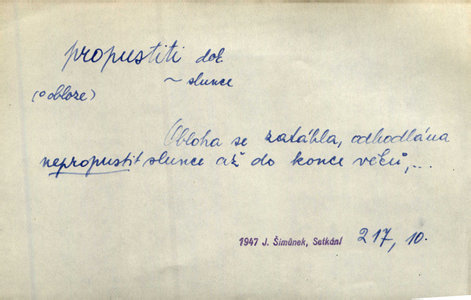 propustiti dok
~ slunce
(o obloze)
Obloha se zatáhla, odhodlána
nepropustit slunce až do konce věků,...
1947 J. Šimůnek, Setkání 217, 10.